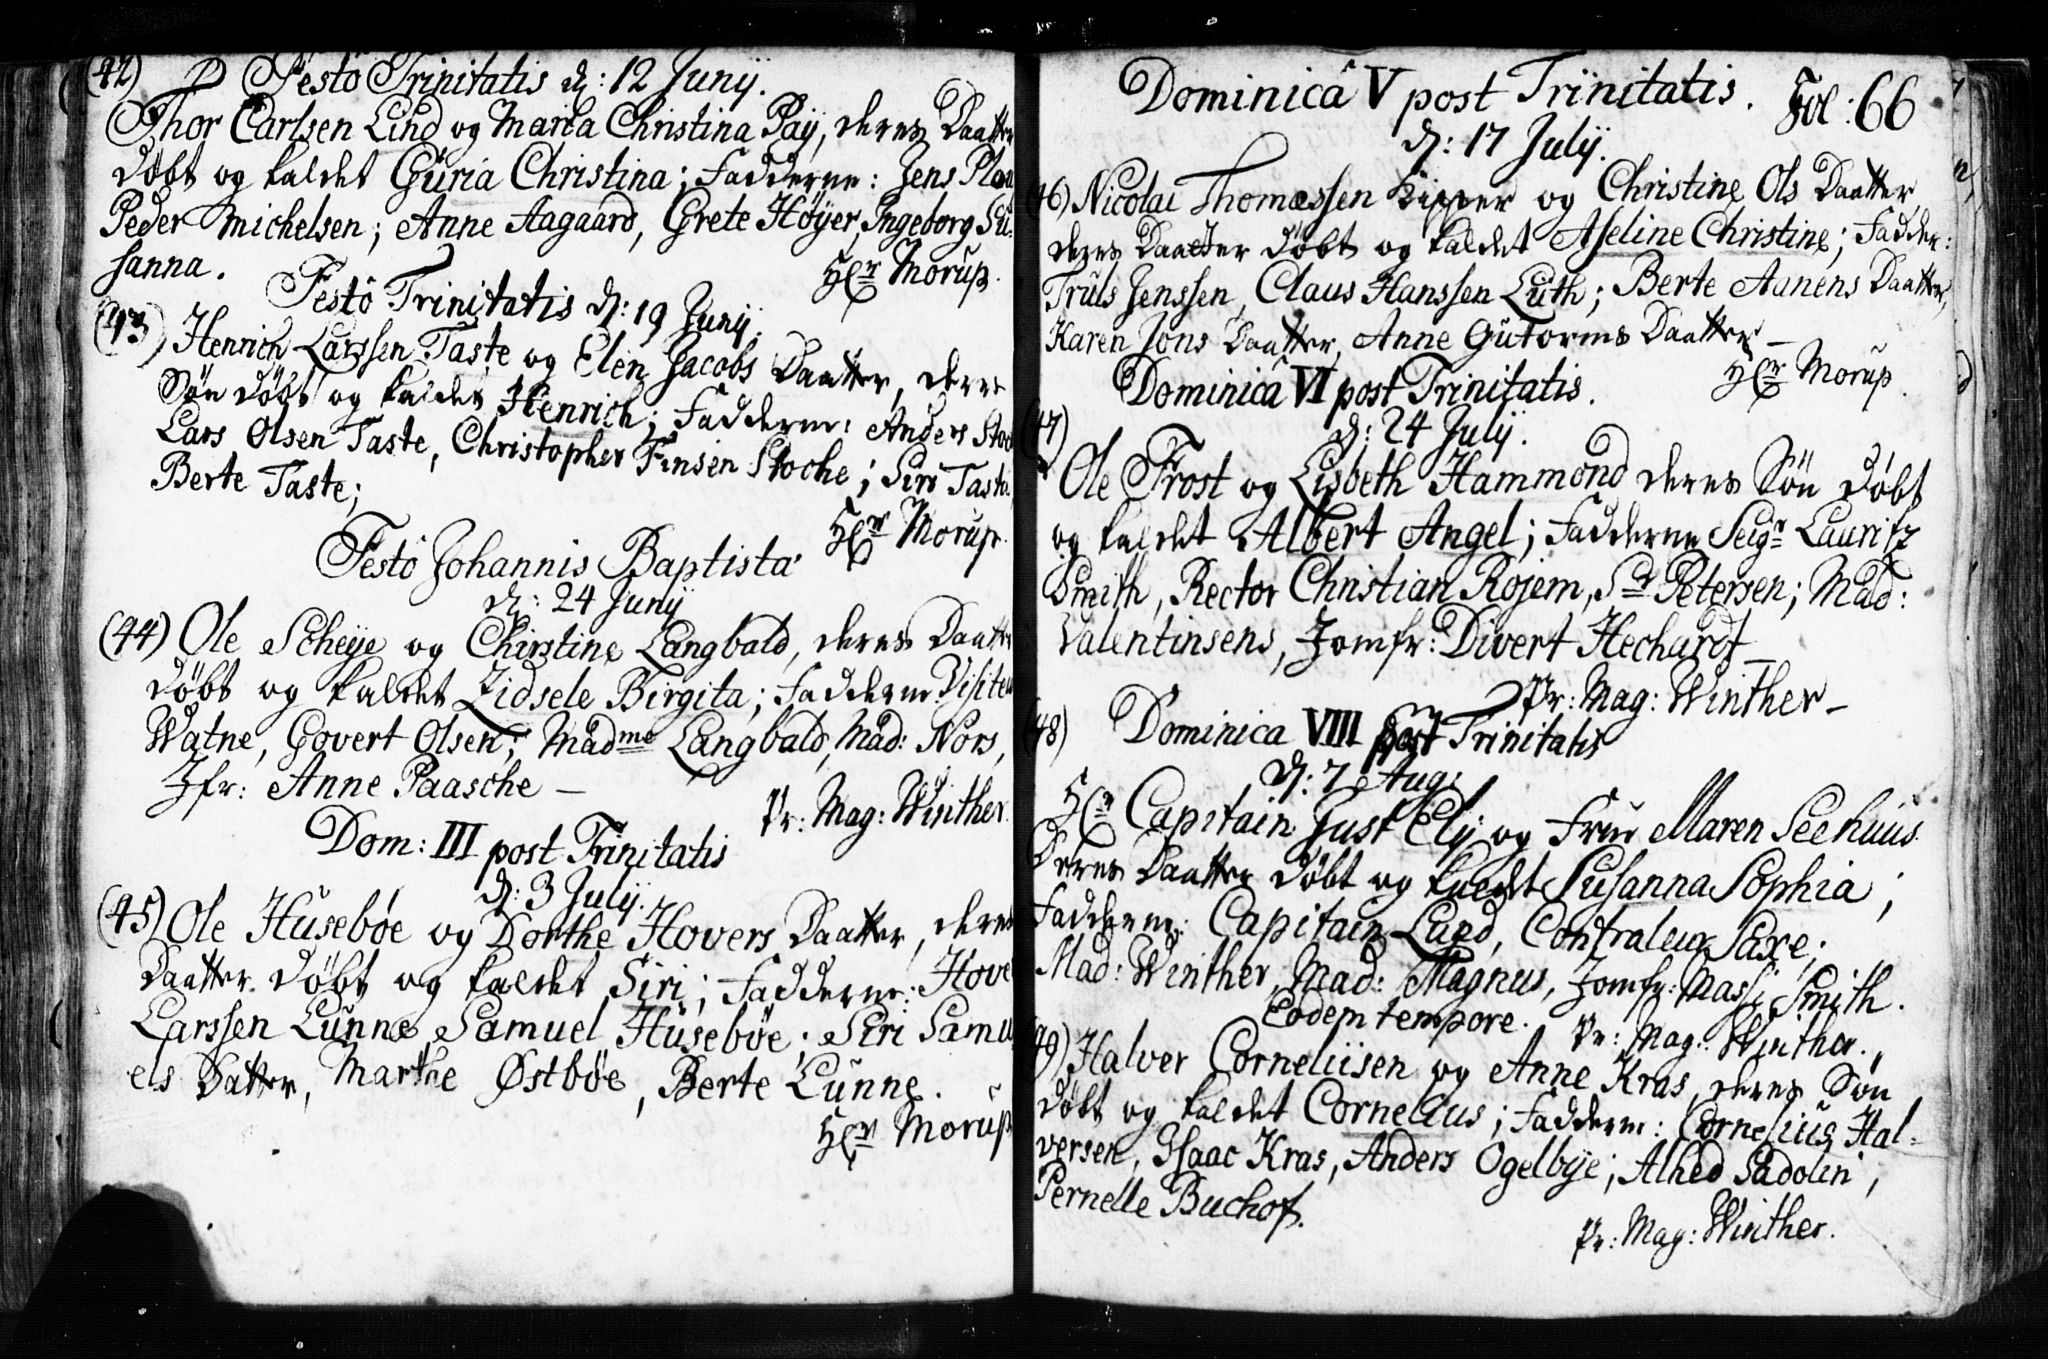 (42) Festô Trinitatis d: 12 Junij.
Thor Carlsen Lind og Maria Christina Paÿ, deres Daatter
døbt og kaldet Guria Christina; Fadderne: Jens
Peder Michelsen; Anne Aagaard, Grete Høÿer, Ingeborg Su-
sanna.
Hr Morup.
Festô Trinitatis d: 19 Junij.
(43) Henrich Larssen Taste og Elen Jacobs Daatter, deres
Søn døbt og kaldet Henrich; Fadderne: Anders
Lars Olsen Taste, Christopher Finsen Stoche; Siri Taste,
Berte Taste;
Hr Morup.
Festô Johannis Baptista
d: 24 Junij
(44) Ole Scheije og Chirstine Langbald, deres Daatter
døbt og kaldet Zidsele Birgita; Fadderne:
Watne, Govert Olsen; Madme Langbald, Mad: Nors,
Jfr: Anne Paasche –
Pr: Mag: Winther.
Dom: III post Trinitatis
d: 3 Julij.
(45) Ole Husebøe og Dorthe Hovers Daatter, deres
Daatter døbt og kaldet Siri; Fadderne: Hove
Larssen Lunne, Samuel Husebøe; Siri Samu
els Datter, Marthe Østbøe, Berte Lunne.
Hr Morup
Dominicâ V post Trinitatis. Fol: 66
d: 17 Julij.
46) Nicolai Thomæssen Kipper og Christine Ols Daatter
deres Daatter døbt og kaldet Aseline Christine; Fadder:
Truls Jenssen, Claus Hanssen Luth; Berte Aanens Daatter,
Karen Jons Daatter, Anne Gutorms Daatter –
Hr Morup.
Dominicâ VI post Trinitatis.
(47) d: 24 Julij.
Ole Frost og Lisbeth Hammond deres Søn døbt
og kaldet Albert Angel; Fadderne Seigr Lauritz
Smith, Rector Christian Rojem, Sr Petersen; Mad:
Valentinsens, Jomfr: Divert Hechardt –
Pr: Mag: Winther –
(48) Dominica VIII post Trinitatis
d: 7 Aug:
Hr Capitain Just Elÿ og Frue Maren Seehuus
Deres Daatter døbt og kaldt Susanna Sophia;
Fadderne: Capitain Lund, Contraleur Saxe;
Mad: Winther, Mad: Magnus, Jomfr: Massi Smith.
Eodem tempore. Pr: Mag: Winther.
49) Halver Corneliisen og Anne Kras, deres Søn
døbt og kaldet Cornelius; Fadderne: Cornelius Hal-
versen, Isaac Kras, Anders Ogelbije; Alhed Sadolin,
Pernelle Buchof.
Pr: Mag: Winther.